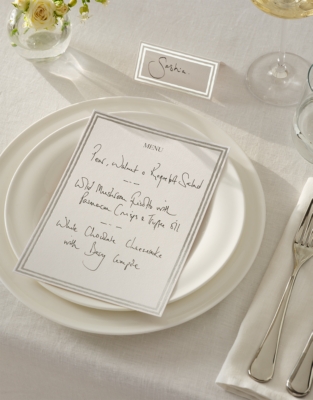 Saskia.
MENU
Pear, Walnut & Roquefort Salad
Wild Mushroom Risotto with
Parmesan Crisps & Truffle Oil
White Chocolate Cheesecake
with Berry Compote